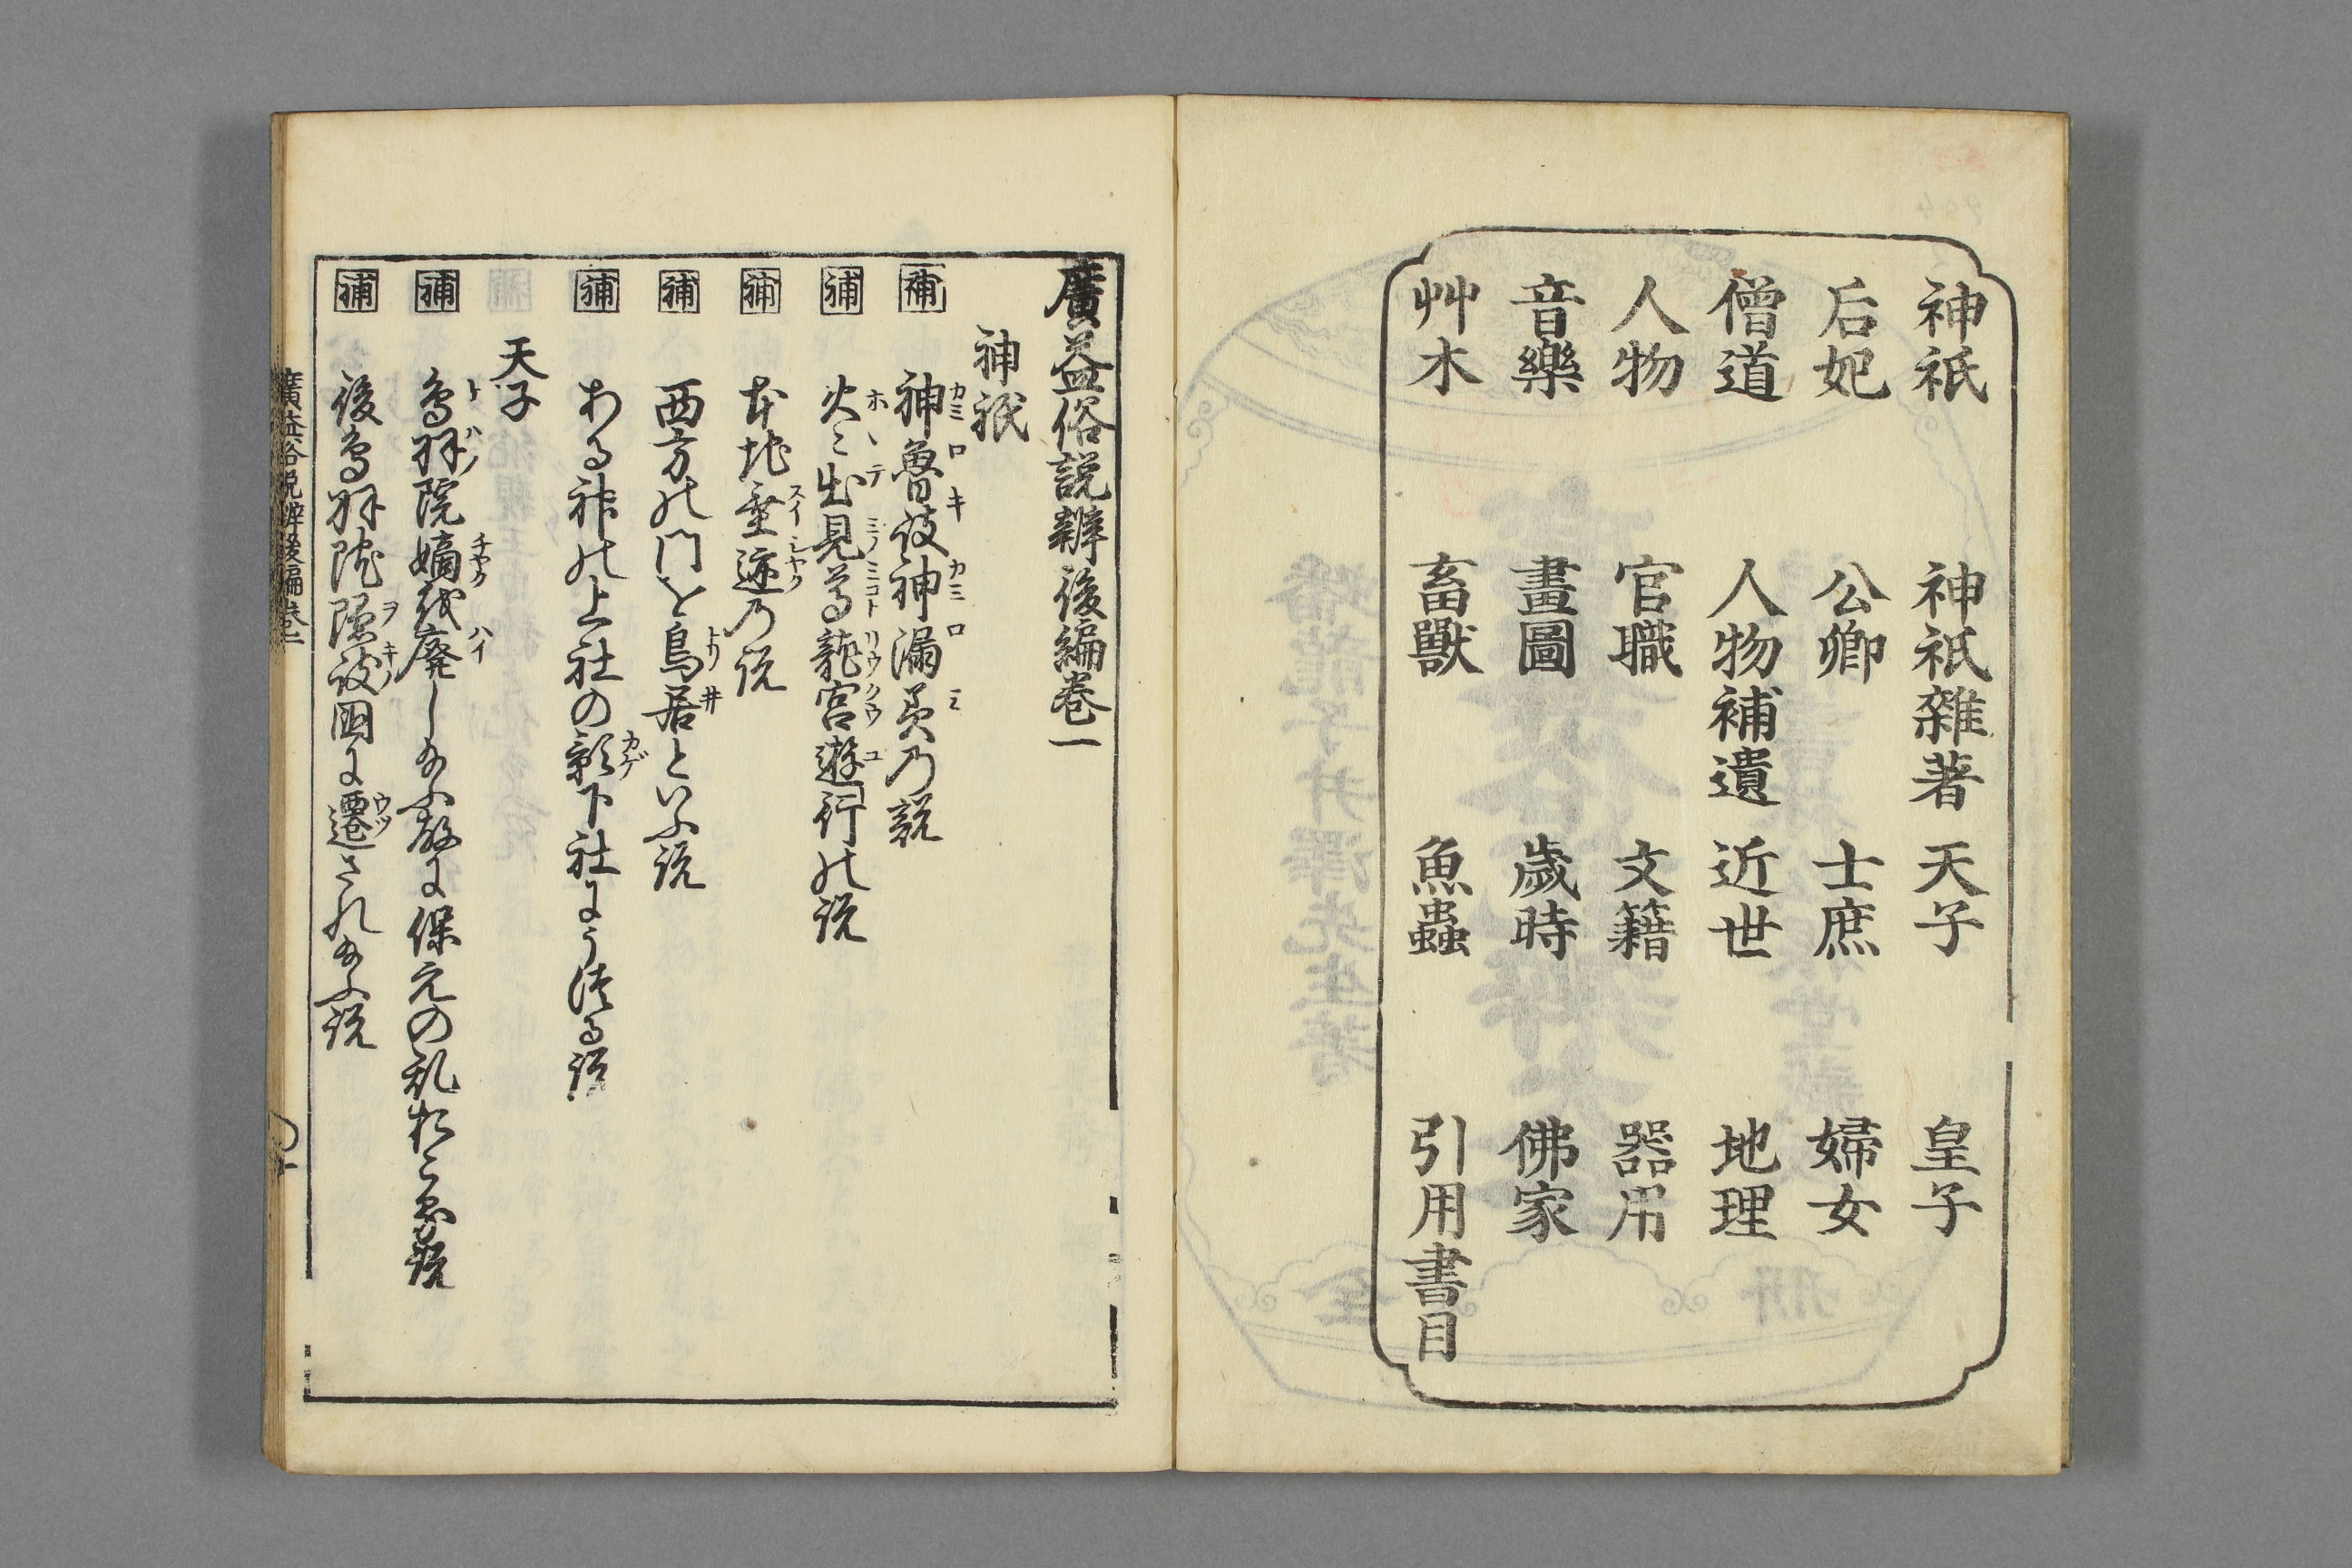 神祇 神祇雜著 天子 皇子
后妃 公卿 士庶 婦女
僧道 人物補遺 近世 地理
人物 官職 文籍 器用
音樂 畫圖 歲時 佛家
艸木 畜獸 魚蟲 引用書目
廣益俗説辨後編巻一
神祇
補 神魯岐神漏美乃説
補 火々出見尊龍宮遊行の説
補 本地垂迹乃説
補 西方の門を鳥居といふ説
補 ある神の上社の影下社にうつる説
天子
補 鳥羽院嫡を廃し給ふ故に保元の乱おこる説
補 後鳥羽院隠岐国に遷され給ふ説
廣益俗説辨後編巻一